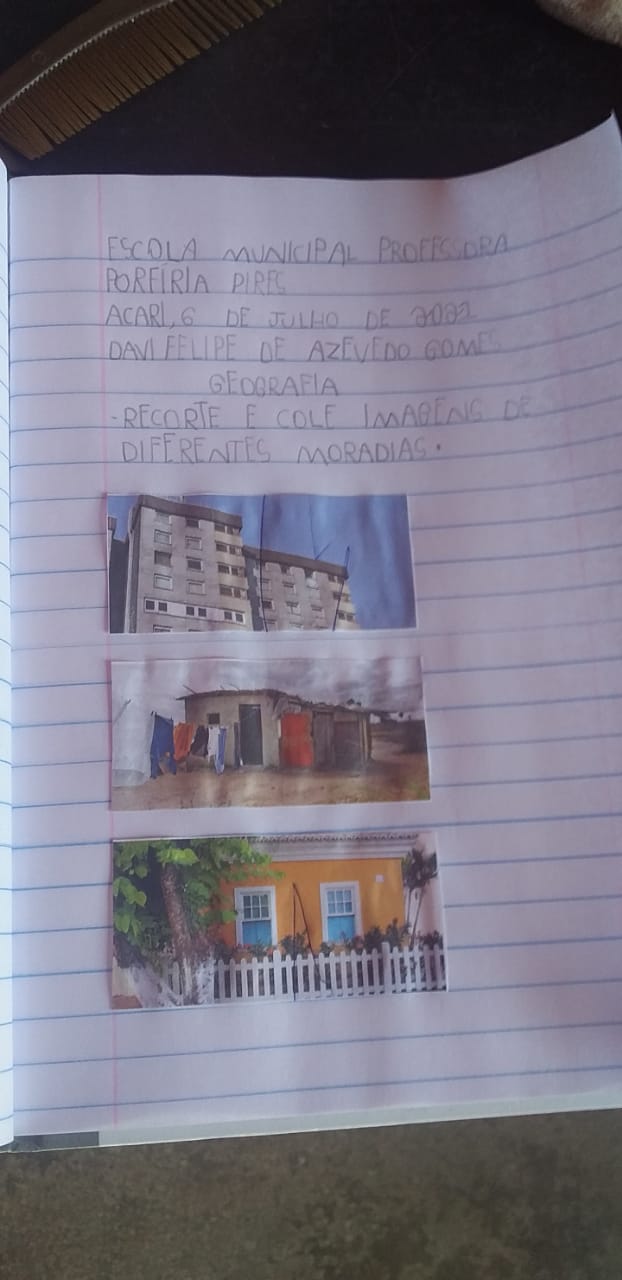 ESCOLA MUNICIPAL PROFESSORA
PORFÍRIA PIRES
ACARI, 6 DE JULHO DE 2022
DAVI FELIPE DE AZEVEDO GOMES
GEOGRAFIA
-RECORTE E COLE IMAGENS DE
DIFERENTES MORADIAS.